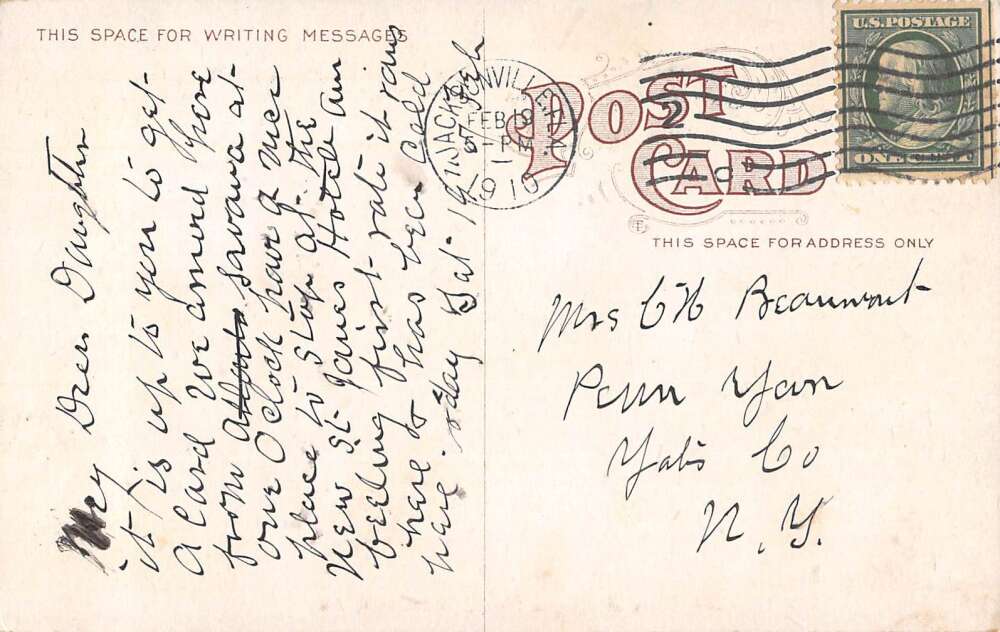 THIS SPACE FOR WRITING MESSAGES
My Dear Daughter
it is up to you to get
a Card We arived here
from Savana at
one O Clock have a nice
place to Stop at. the
New St James Hotele am
feeling first rate it rains
here & has been Cold
here. to day Sat. 19 Feb
JACKSONVILLE, FLA
FEB 19
5 - PM
1910
POST
CARD
2
U.S. POSTAGE
ONE CENT
THIS SPACE FOR ADDRESS ONLY
Mrs C H Beaumont
Penn Yan
Yats Co
N. Y.